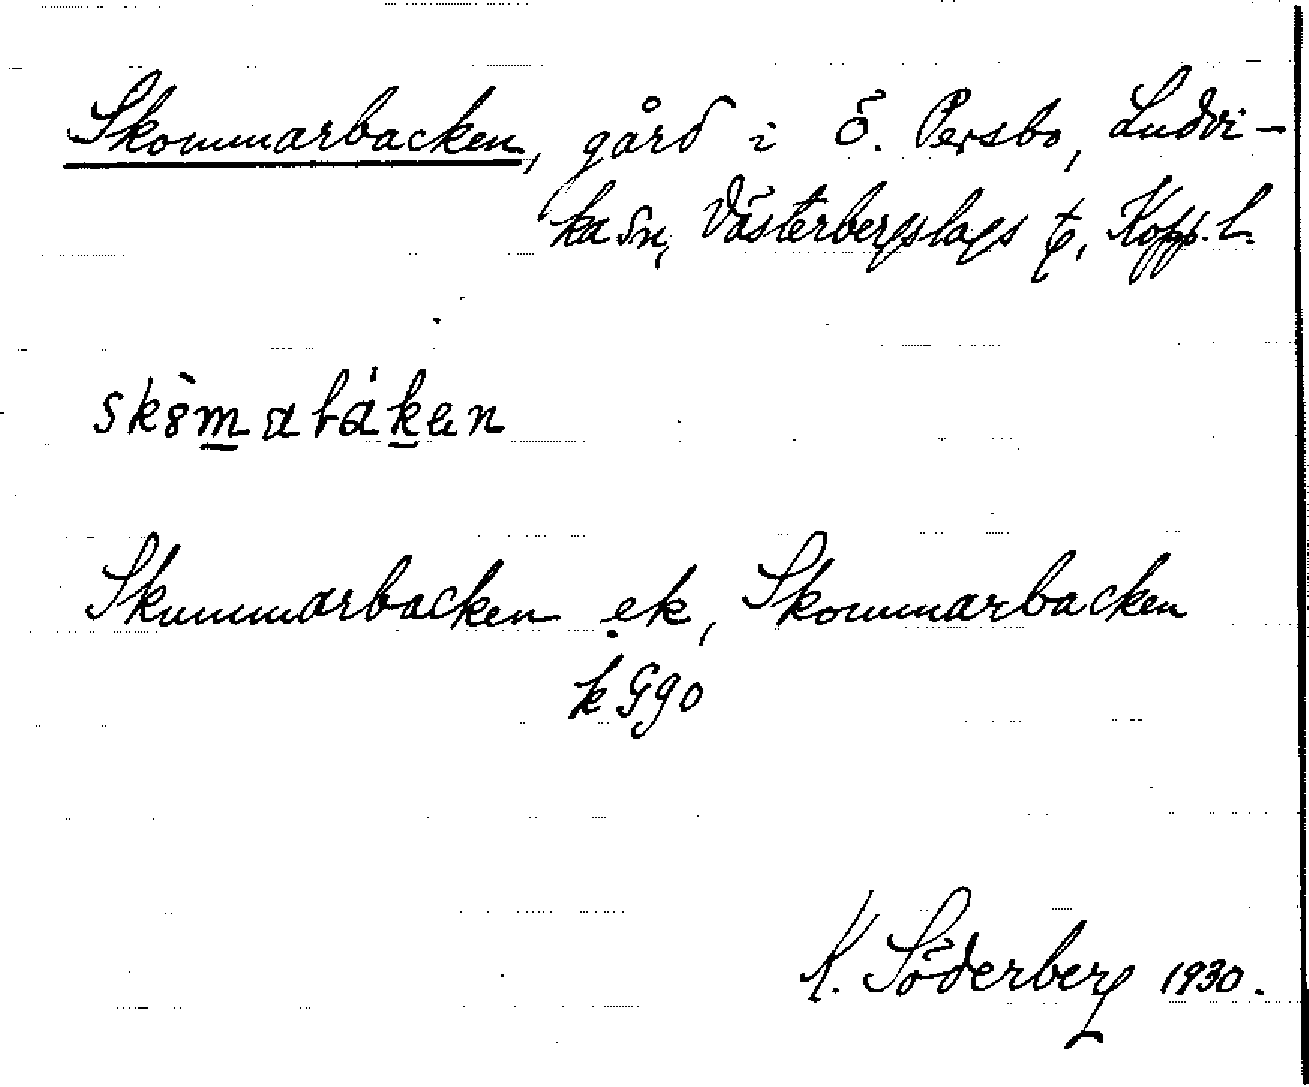 Skommarbacken, gård i Ö. Persbo, Ludvi-
ka sn, Västerbergslags t, Kopp. L.
sk8̀mabákɐn
Skummarbacken ek, Skommarbacken
k Ggo
K. Söderberg 1930.